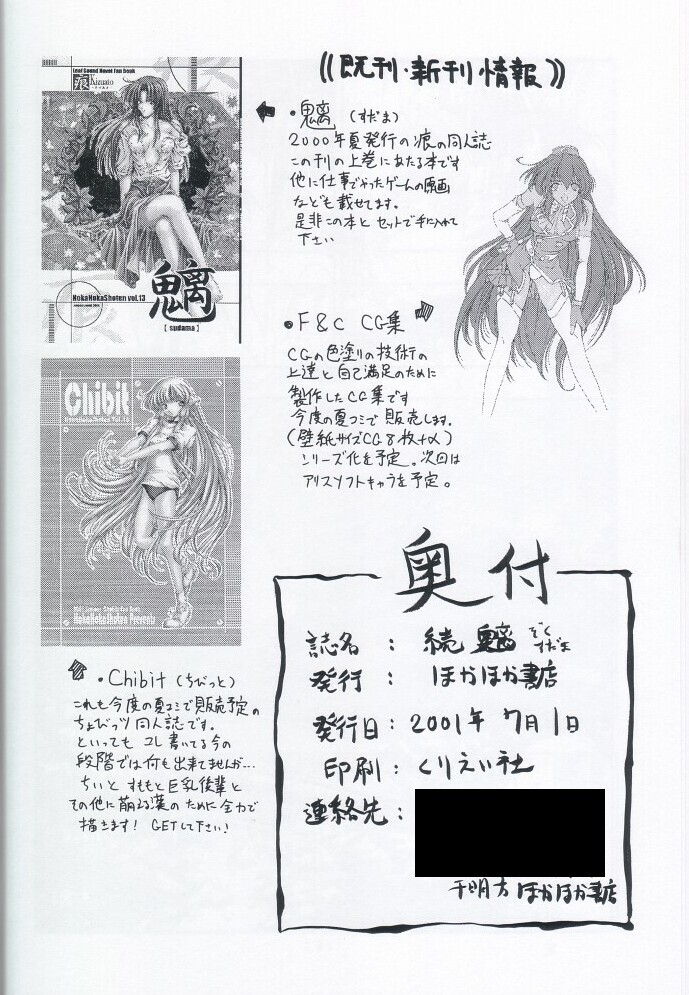 ((既刊・新刊情報))
Leaf Sound Novel Fan book
痕 Kizuato
HokaHokaShoten vol.13
魑
【 sudama 】
・魑 (すだま)
2000年夏発行の痕の同人誌
この刊の上巻にあたる本です
他に仕事でやったゲームの原画
なども載せてます。
是非この本とセットで手に入れて
下さい
・F&C CG集
CGの色塗りの技術の
上達と自己満足のために
製作したCG集です
今度の夏コミで販売します。
(壁紙サイズCG8枚+α)
シリーズ化を予定。次回は
アリスソフトキャラを予定。
Chibit
HokaHokaShoten Presents
・Chibit (ちびっと)
これも今度の夏コミで販売予定の
ちょびっツ同人誌です。
といっても コレ書いてる今の
段階では何も出来てませんが…
ちいと すももと巨乳後輩と
その他に萌える漢のために全力で
描きます! GETして下さい!
奥付
誌名 : 続 魑 ぞくすだま
発行 : ほかほか書店
発行日 : 2001年 7月1日
印刷 : くりえい社
連絡先 :
千明方 ほかほか書店